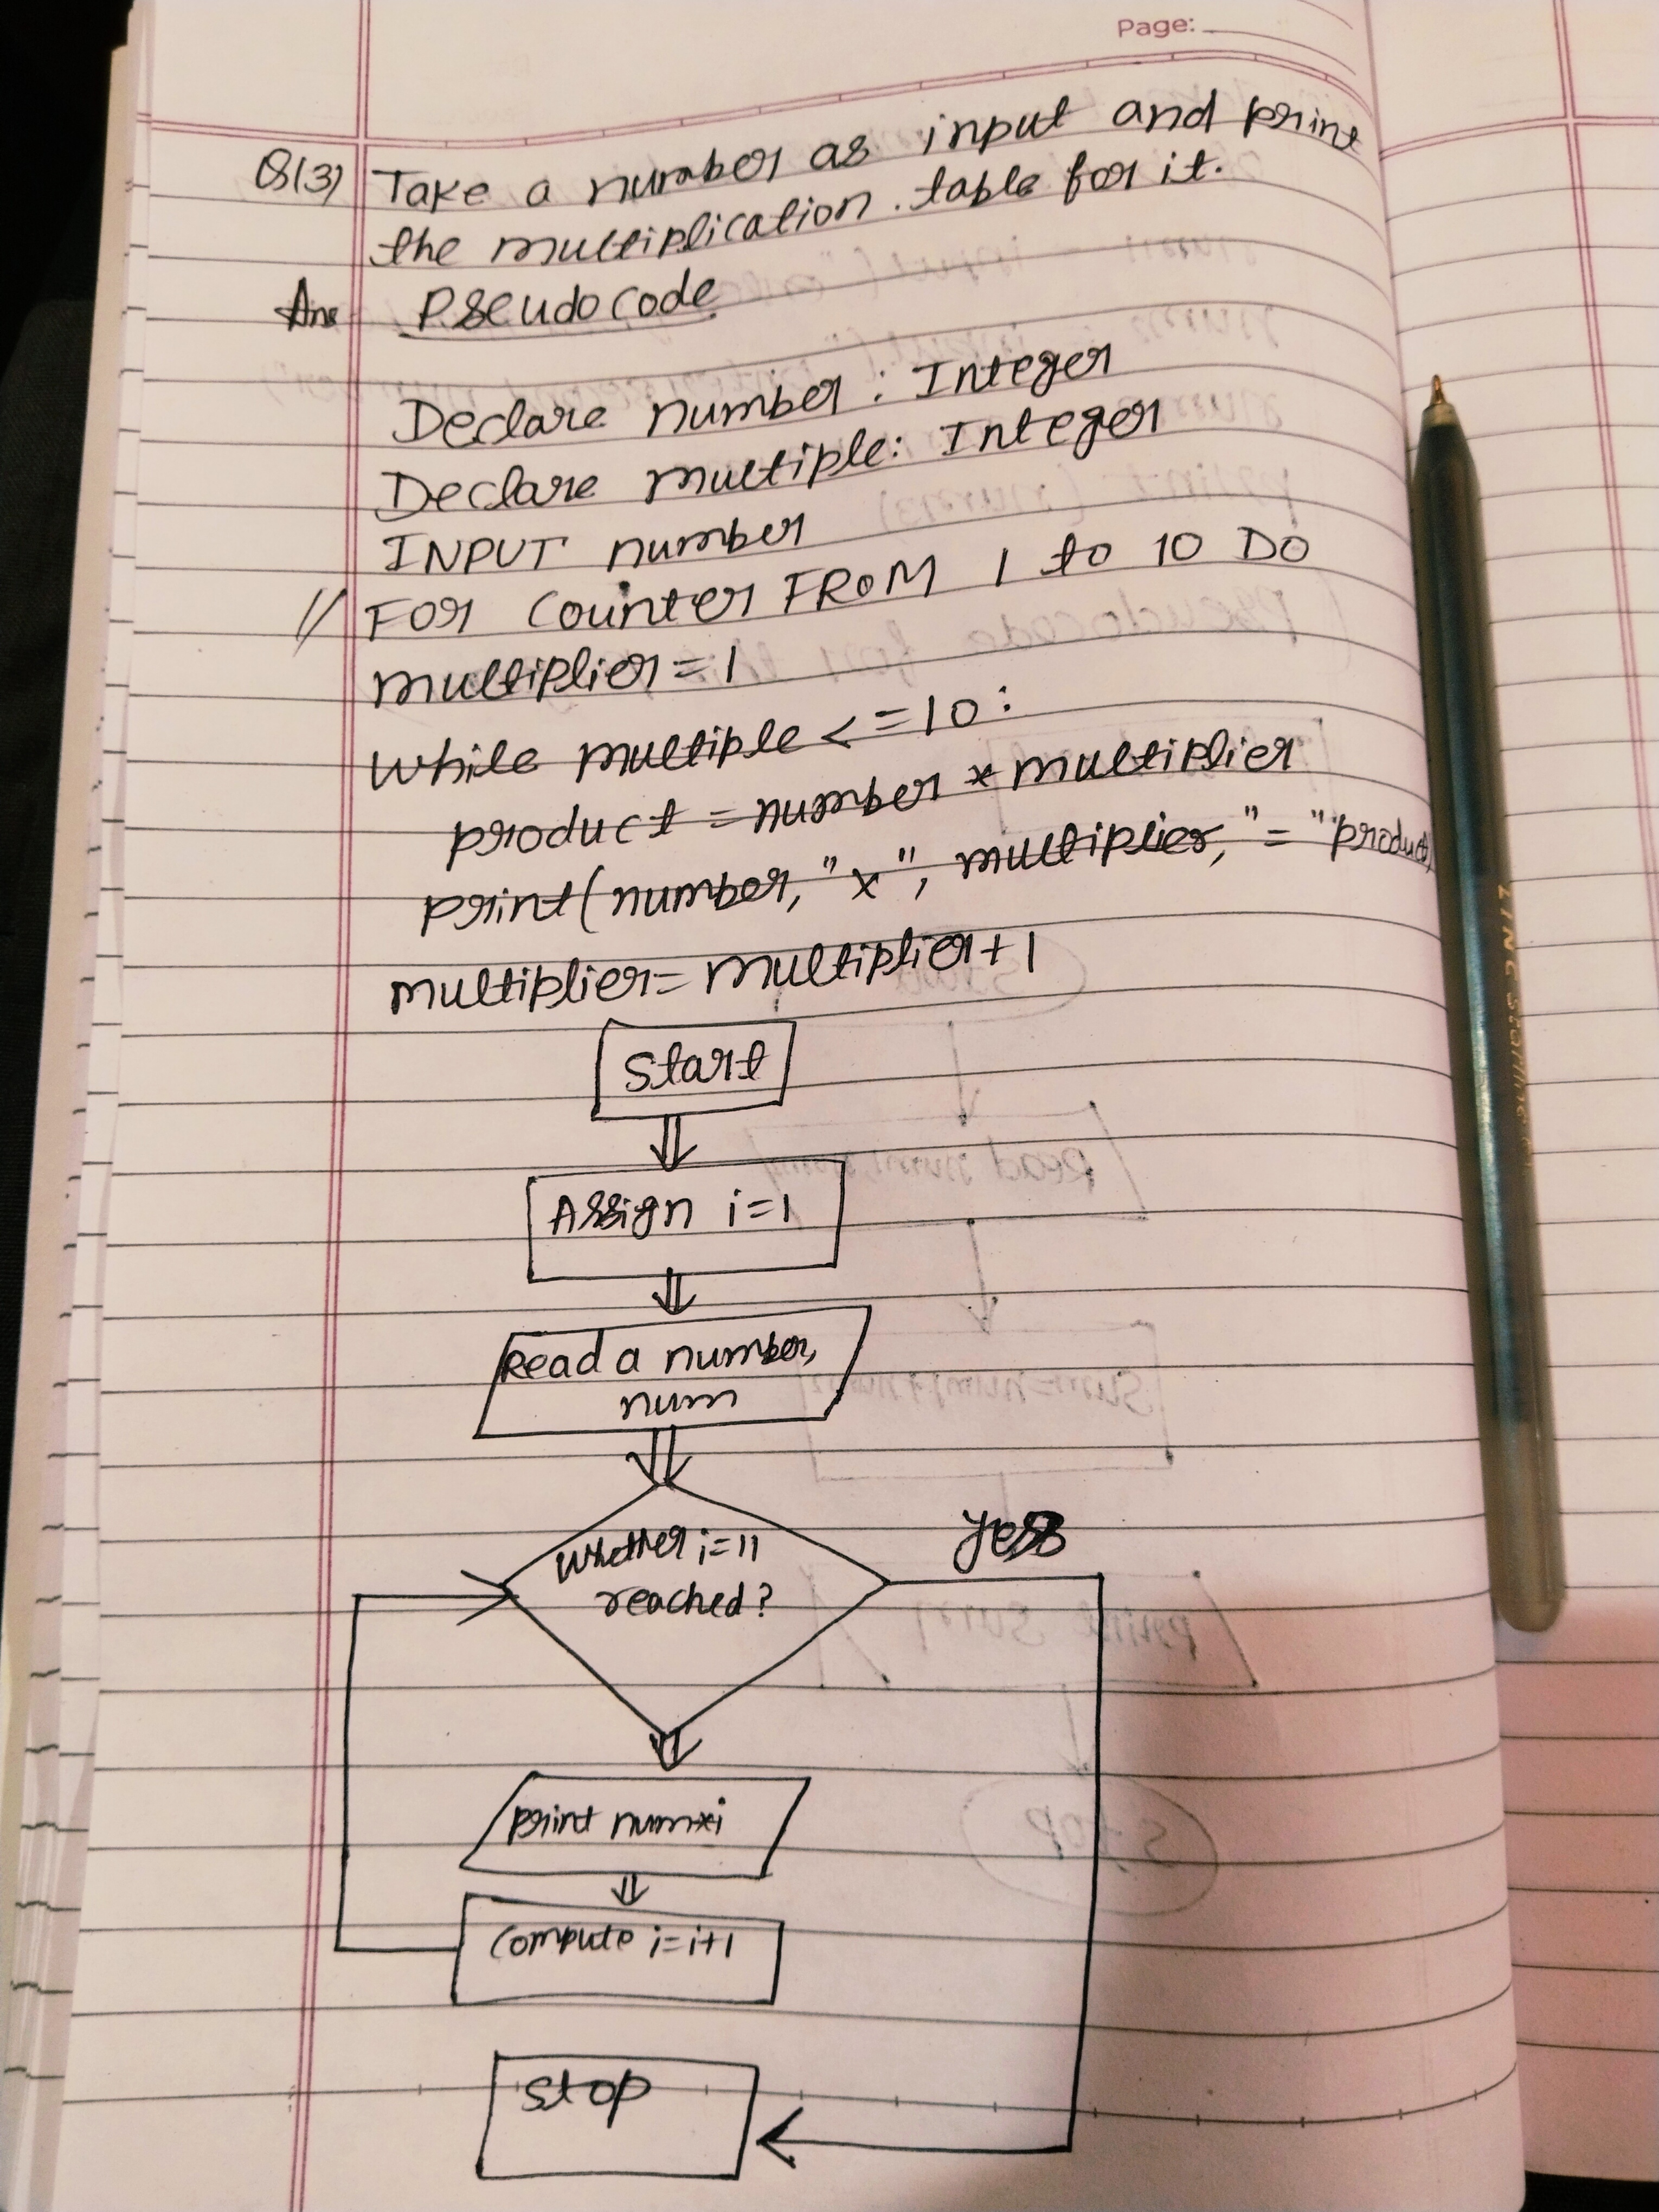 Page:
Q(3) Take a number as input and print
the multiplication. table for it.
Ans Pseudocode
Declare number: Integer
Declare multiple: Integer
INPUT number
// FOR Counter FROM 1 to 10 DO
multiplier=1
While multiple <=10:
product = number * multiplier
print(number, "x", multiplier, "=" "product)
multiplier= multiplier+1
Start
Assign i=1
Read a number,
num
Whether i=11
reached?
Yes
print num*i
Compute i=i+1
Stop